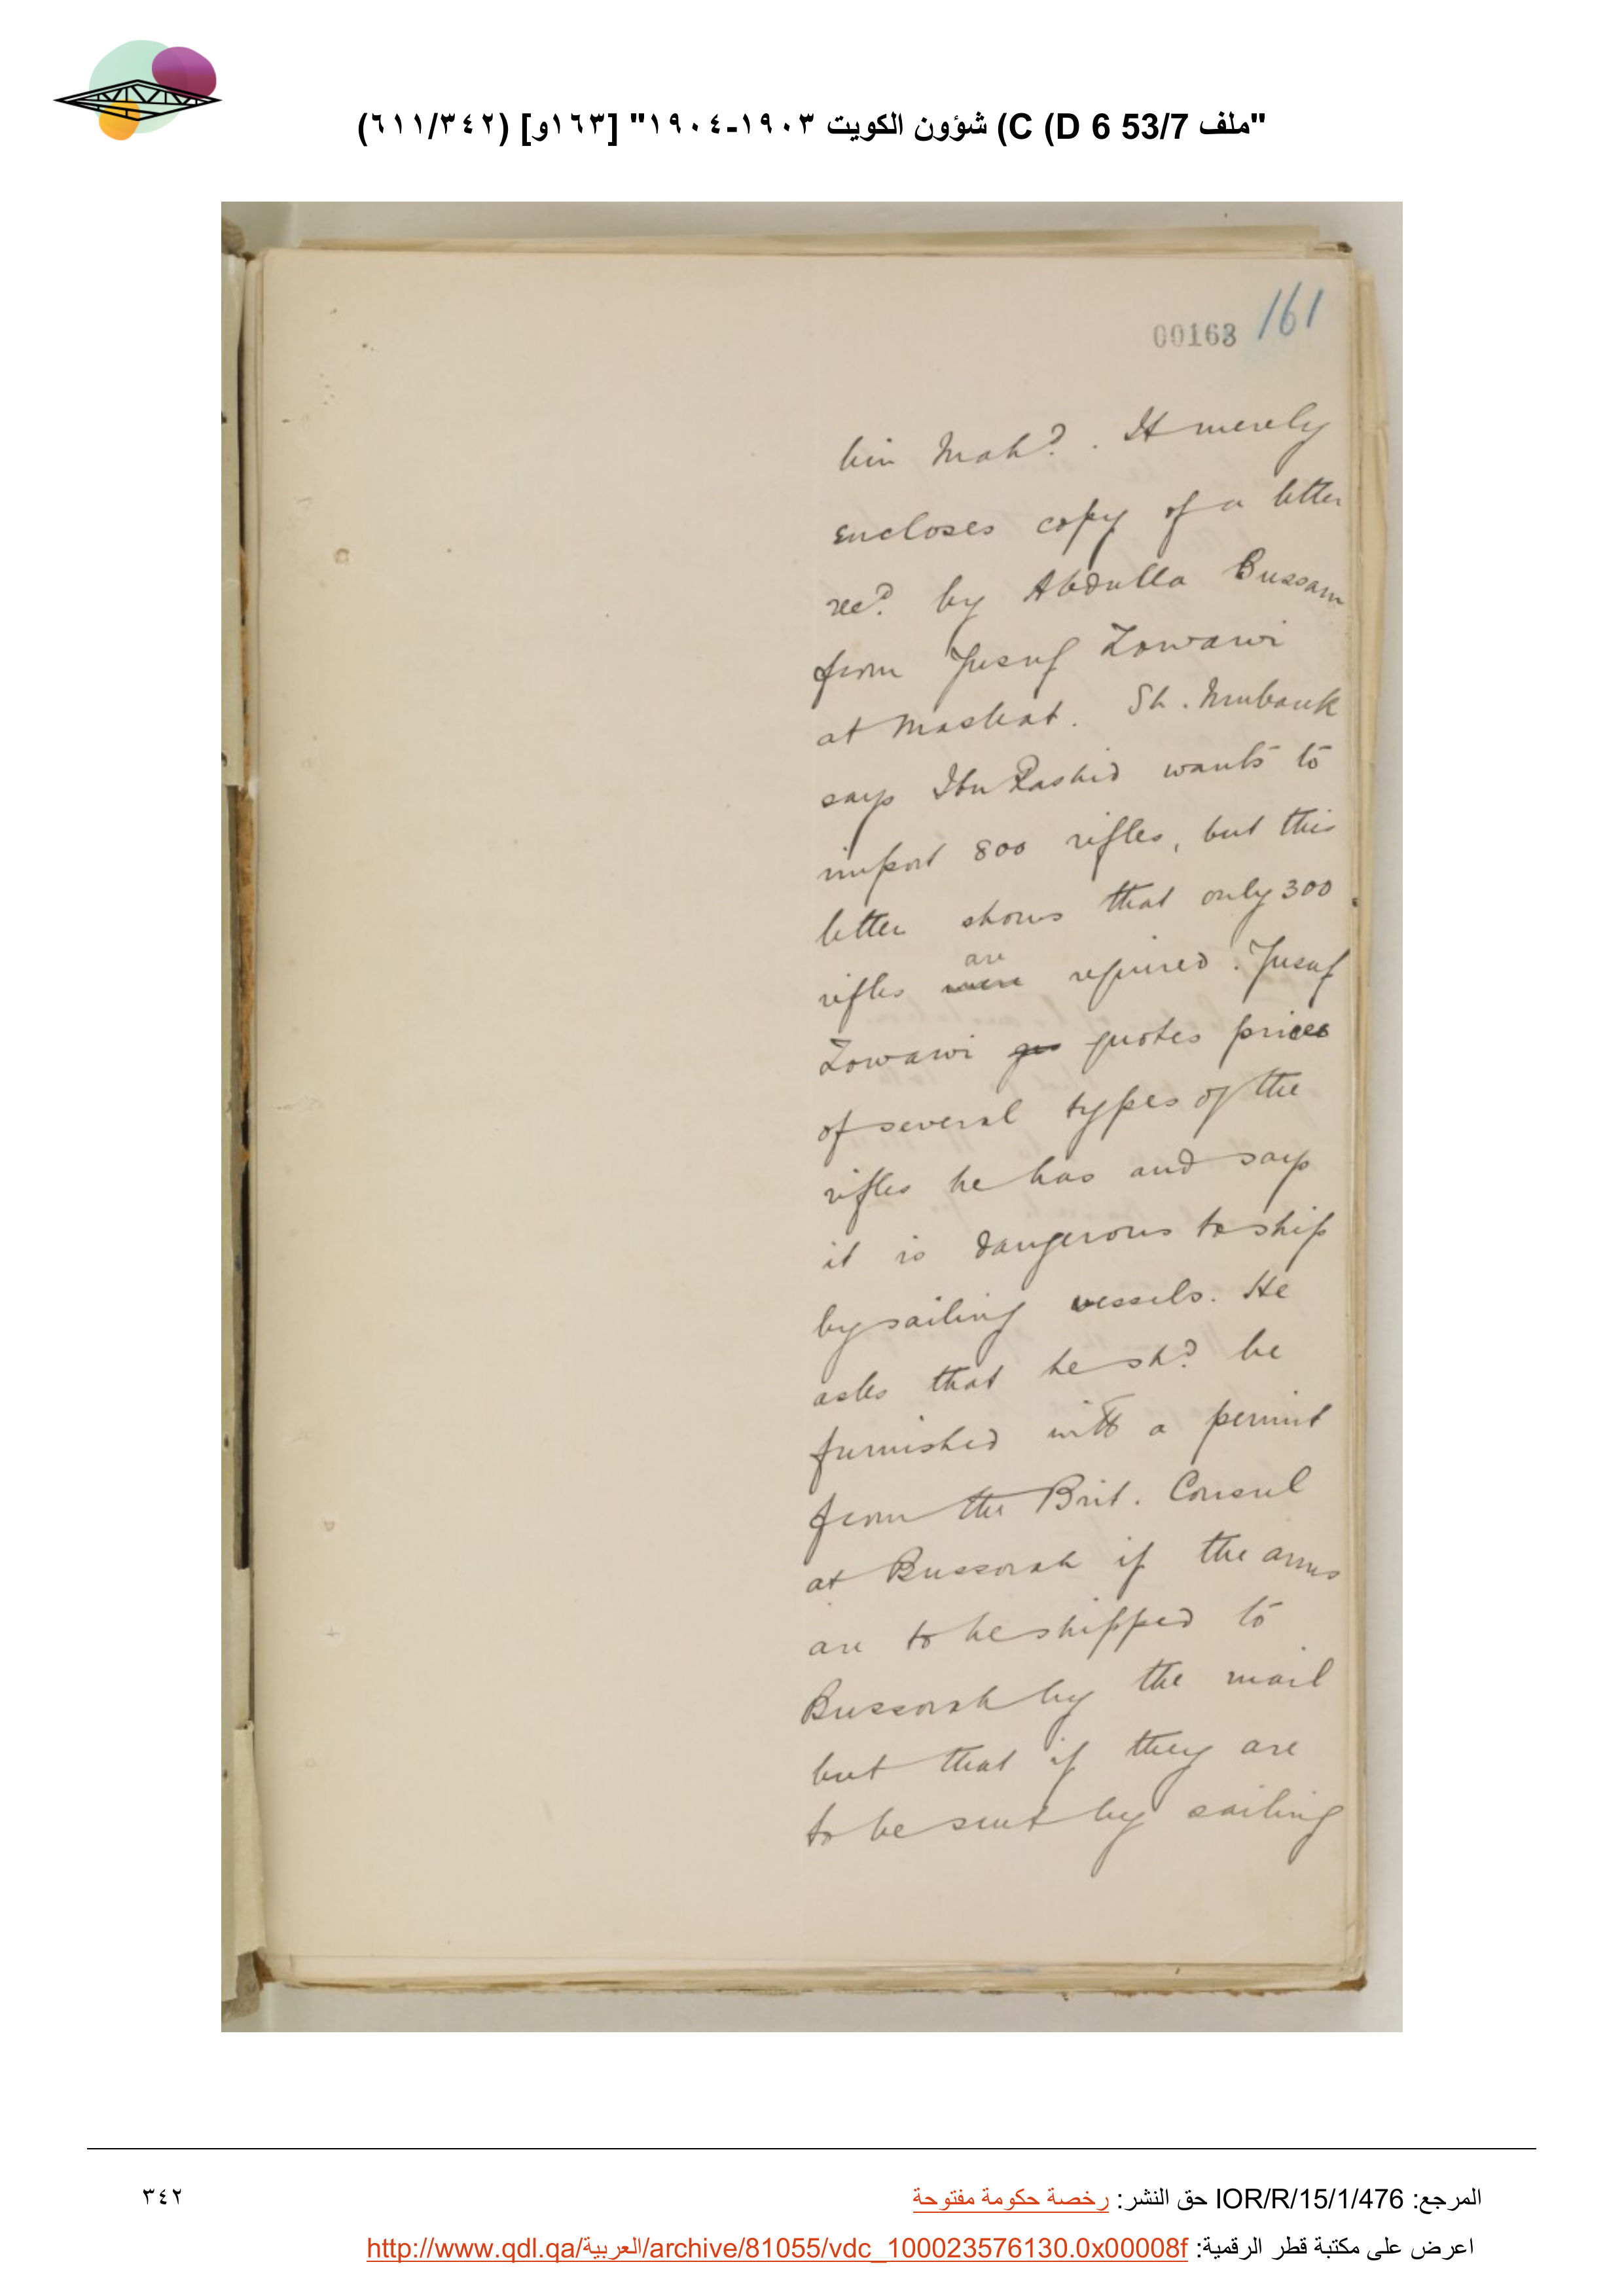 "ملف 53/7 C (D 6) شؤون الكويت ١٩٠٣-١٩٠٤" [١٦٣و] (٦١١/٣٤٢)
00163 161
bin Mahd. It merely
encloses copy of a letter
recd. by Abdulla Bussam
from Yusuf Zowawi
at Maskat. Sh. Mubarak
says Ibn Rashid wants to
import 800 rifles, but this
letter shows that only 300
are
rifles were required. Yusuf
Zowawi quotes prices
of several types of the
rifles he has and says
it is dangerous to ship
by sailing vessels. He
asks that he shd. be
furnished with a permit
from the Brit. Consul
at Bussorah if the arms
are to be shipped to
Bussorah by the mail
but that if they are
to be sent by sailing
المرجع: IOR/R/15/1/476 حق النشر: رخصة حكومة مفتوحة
٣٤٢
اعرض على مكتبة قطر الرقمية: http://www.qdl.qa/العربية/archive/81055/vdc_100023576130.0x00008f